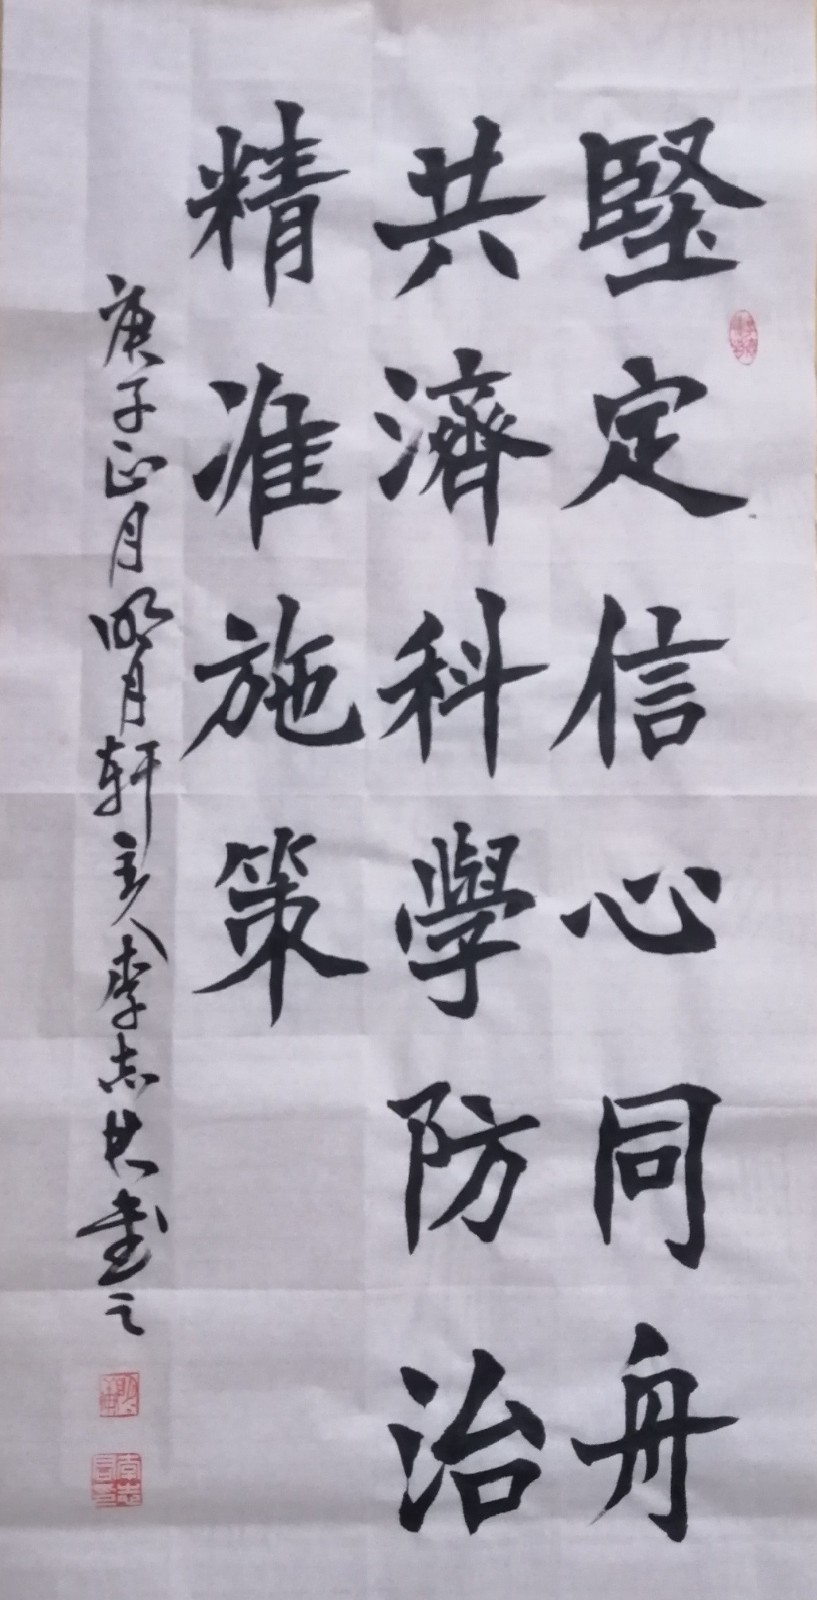 堅定信心同舟
共濟科學防治
精准施策
庚子正月明月轩主人李志其書之